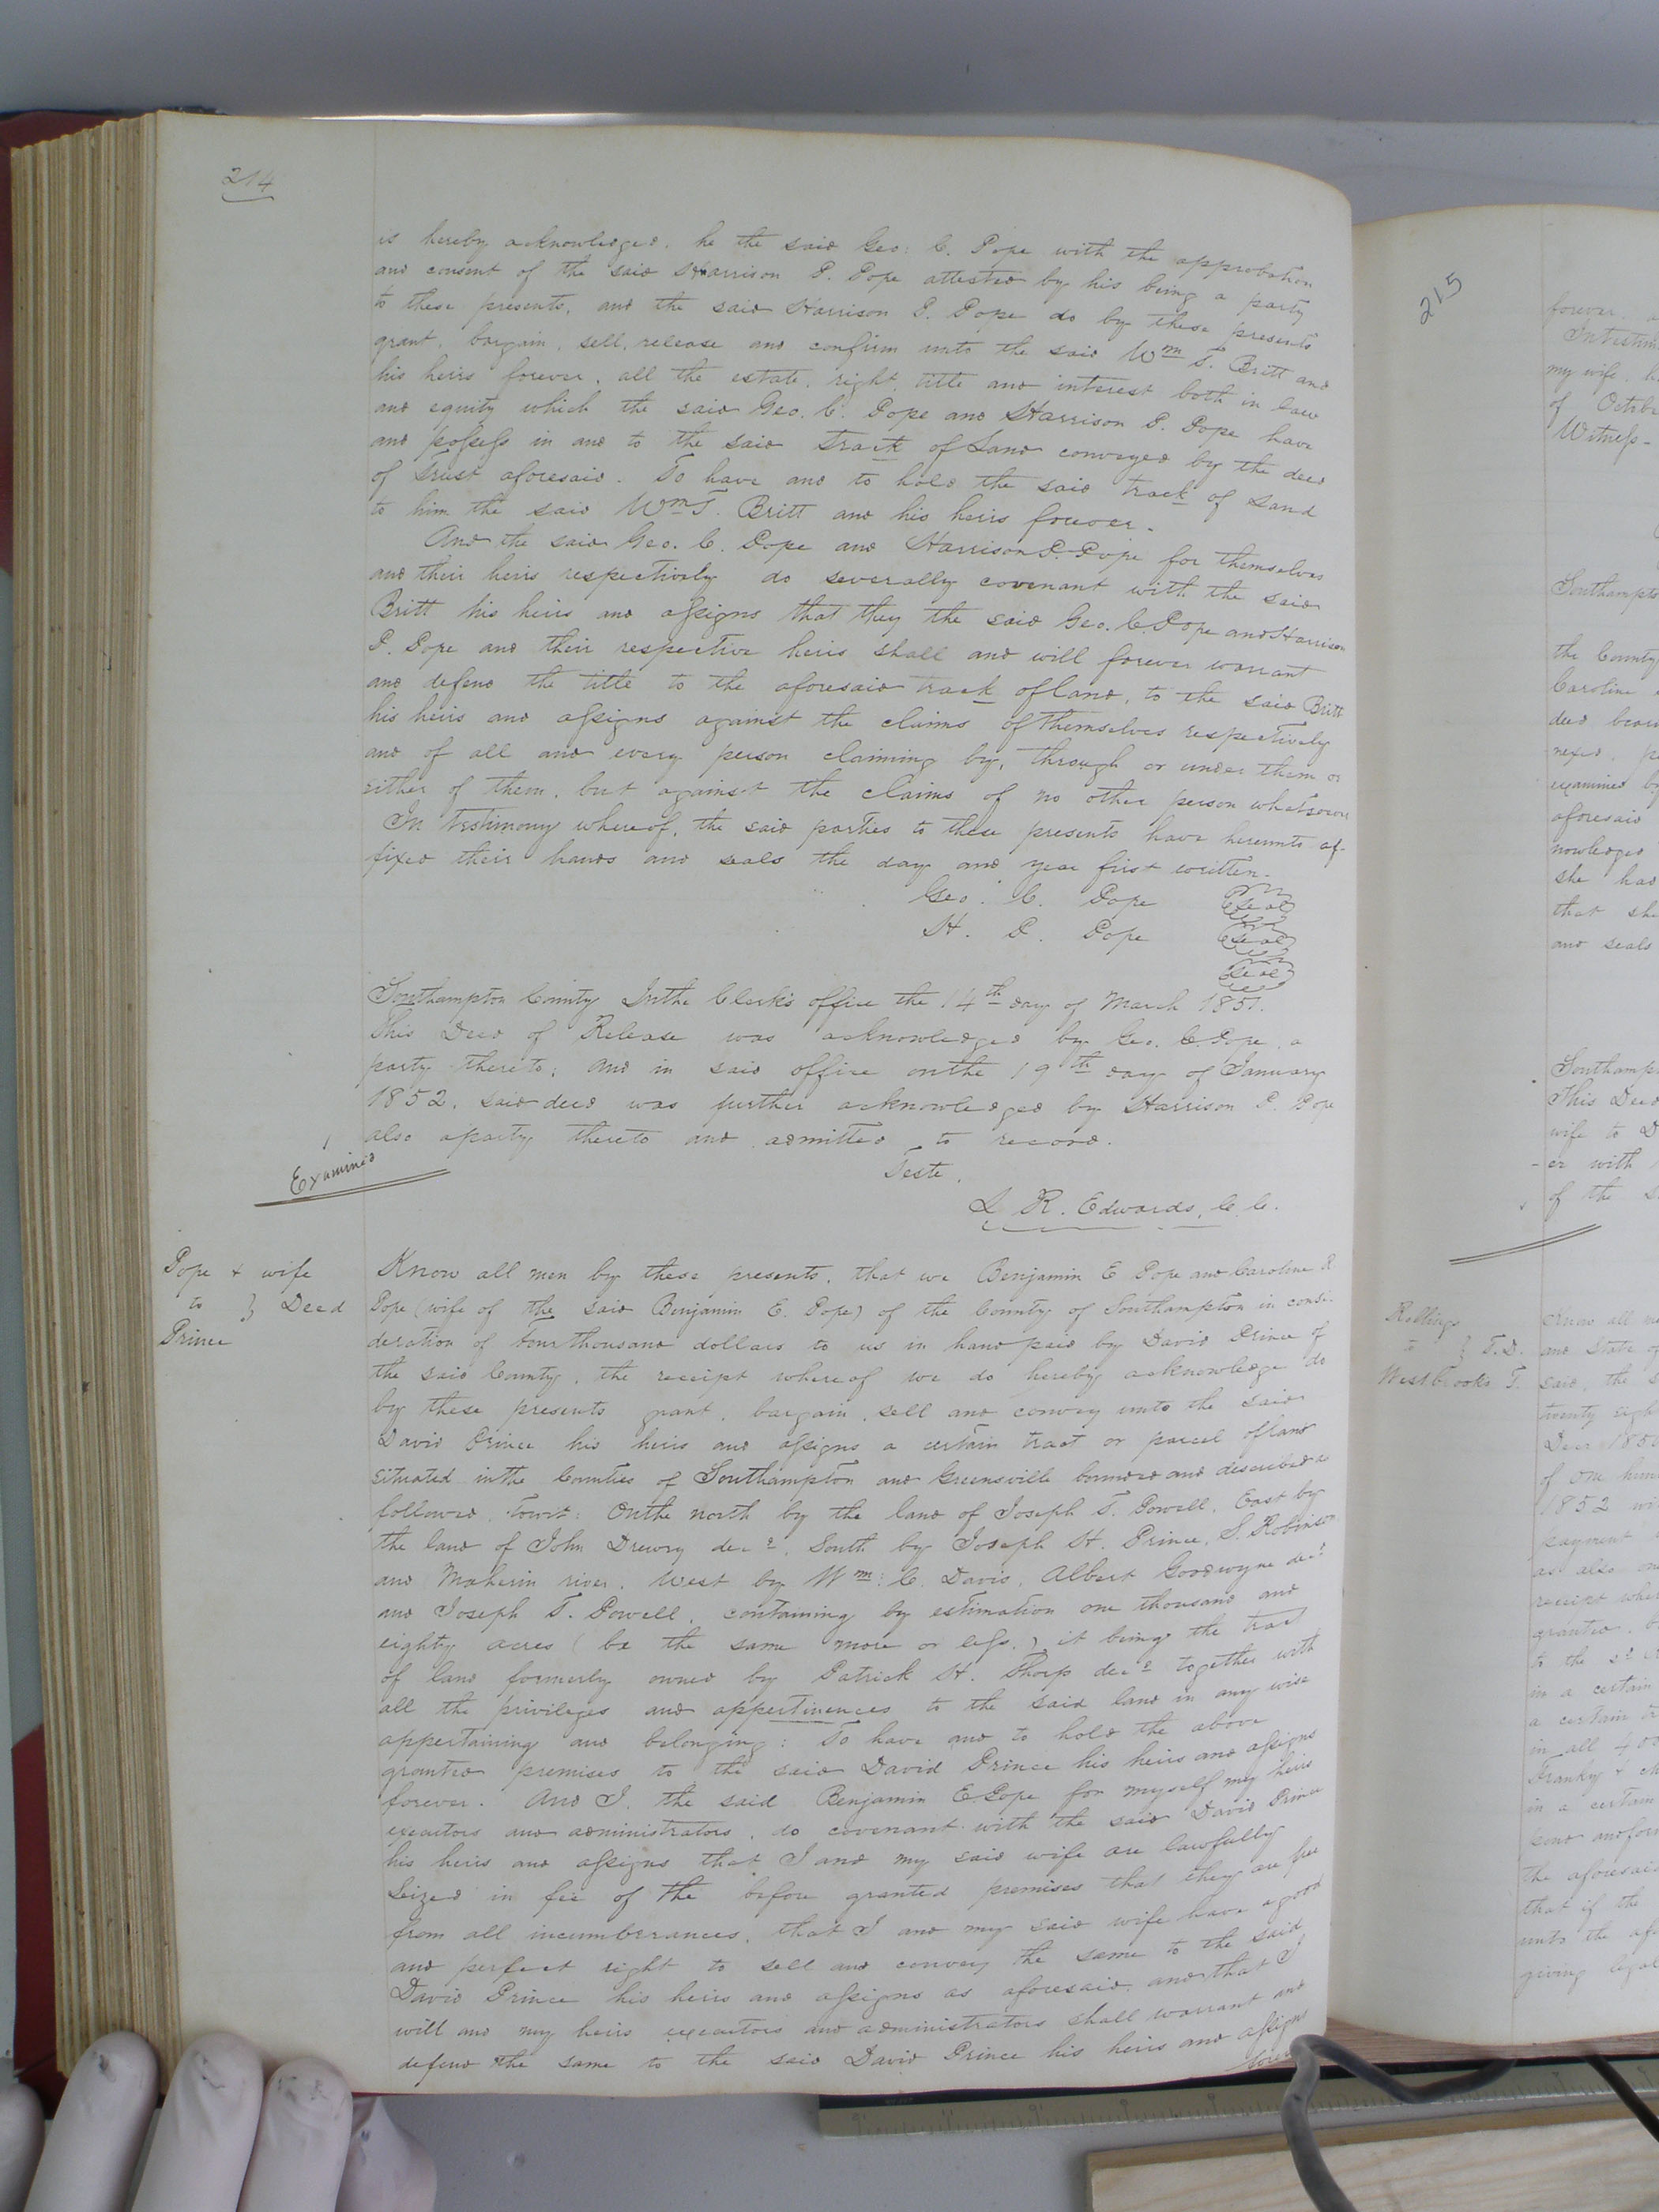 214
is hereby acknowledged, he the said Geo: C. Pope with the approbation
and consent of the said Harrison P. Pope attested by his being a party
to these presents, and the said Harrison P. Pope do by these presents
grant, bargain, sell, release and confirm unto the said Wm T. Britt and
his heirs forever, all the estate, right, title and interest both in law
and equity which the said Geo. C. Pope and Harrison P. Pope have
and possess in and to the said track of Land conveyed by the deed
of Trust aforesaid. To have and to hold the said track of Land
to him the said Wm T. Britt and his heirs forever.
And the said Geo. C. Pope and Harrison P. Pope for themselves
and their heirs respectively do severally covenant with the said
Britt his heirs and assigns that they the said Geo. C. Pope and Harrison
P. Pope and their respective heirs shall and will forever warrant
and defend the title to the aforesaid track of land, to the said Britt
his heirs and assigns against the claims of themselves respectively
and of all and every person claiming by, through or under them or
either of them, but against the claims of no other person whatsoever
In testimony whereof, the said parties to these presents have hereunto af-
fixed their hands and seals the day and year first written.
Geo. C. Pope Seal
H. P. Pope Seal
Seal
Southampton County In the Clerk's office the 14th day of March 1851.
This Deed of Release was acknowledged by Geo. C. Pope, a
party thereto; and in said office on the 19th day of January
1852, said deed was further acknowledged by Harrison P. Pope
also a party thereto and admitted to record.
Examined
Teste,
L. R. Edwards, C. C.
Pope & wife
to } Deed
Prince
Know all men by these presents, that we Benjamin E Pope and Caroline R
Pope (wife of the said Benjamin E. Pope) of the County of Southampton in consi-
deration of four thousand dollars to us in hand paid by David Prince of
the said County, the receipt whereof we do hereby acknowledge do
by these presents grant, bargain, sell and convey unto the said
David Prince his heirs and assigns a certain tract or parcel of land
situated in the Counties of Southampton and Greensville bounded and described as
followed, Towit: On the north by the land of Joseph T. Powell, East by
the land of John Drewry decd, South by Joseph H. Prince, S. Robinson
and Maherin river, West by Wm: C. Davis, Albert Goodwyne decd
and Joseph T. Powell, containing by estimation one thousand and
eighty acres (be the same more or less,) it being the tract
of land formerly owned by Patrick H. Thorp decd together with
all the privileges and appertinences to the said land in any wise
appertaining and belonging: To have and to hold the above
granted premises to the said David Prince his heirs and assigns
forever. And I, the said Benjamin E. Pope for myself my heirs
executors and administrators, do covenant with the said David Prince
his heirs and assigns that I and my said wife are lawfully
Seized in fee of the before granted premises that they are free
from all incumberances, that I and my said wife have a good
and perfect right to sell and convey the same to the said
David Prince his heirs and assigns as aforesaid, and that I
will and my heirs executors and administrators shall warrant and
defend the same to the said David Prince his heirs and assigns
forever
215
forever,
my wife,
of Octob
Witness-
Southampto
the County
Caroline
deed
examined by
aforesaid
she had
that sh
and seals
Southamp
This Deed
wife to D
-er with
of the
Rollings
to } T.D.
Westbrooks T.
Know all me
and State of
said, the s
twenty eigh
of one hun
1852
payment
as also
receipt wher
granted,
to the sd
in a certain
a certain tr
in all 400
in a certain
the aforesaid
that if the
unto the af
giving legal